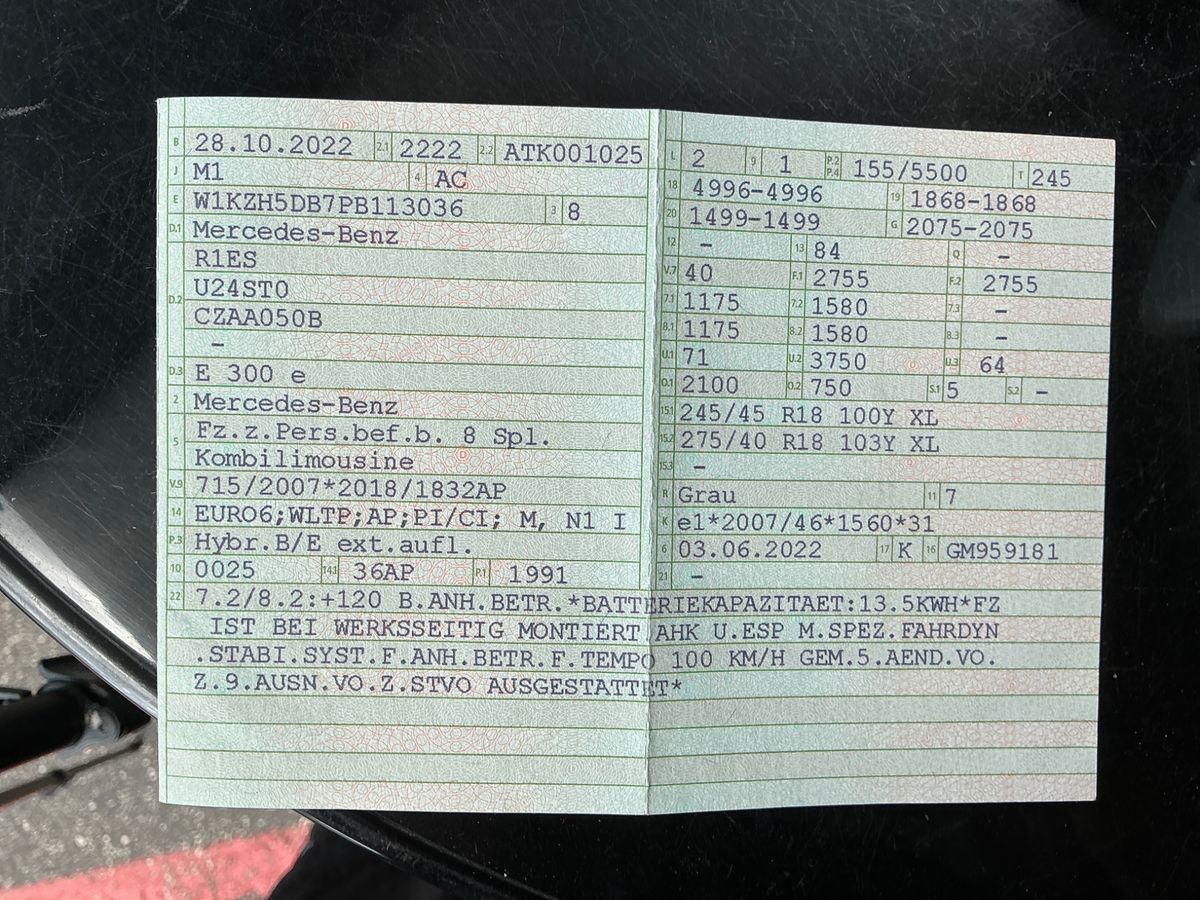 B 28.10.2022 2.1 2222 2.2 ATK001025
J M1 4 AC
E W1KZH5DB7PB113036 3 8
D.1 Mercedes-Benz
R1ES
D.2 U24ST0
CZAA050B
–
D.3 E 300 e
2 Mercedes-Benz
5 Fz.z.Pers.bef.b. 8 Spl.
Kombilimousine
V.9 715/2007*2018/1832AP
14 EURO6;WLTP;AP;PI/CI; M, N1 I
P.3 Hybr.B/E ext.aufl.
10 0025 14.1 36AP P.1 1991
L 2 9 1 P.2 P.4 155/5500 T 245
18 4996–4996 19 1868–1868
20 1499–1499 G 2075–2075
12 – 13 84 Q –
V.7 40 F.1 2755 F.2 2755
7.1 1175 7.2 1580 7.3 –
8.1 1175 8.2 1580 8.3 –
U.1 71 U.2 3750 U.3 64
O.1 2100 O.2 750 S.1 5 S.2 –
15.1 245/45 R18 100Y XL
15.2 275/40 R18 103Y XL
15.3 –
R Grau 11 7
K e1*2007/46*1560*31
6 03.06.2022 17 K 16 GM959181
21 –
22 7.2/8.2:+120 B.ANH.BETR.*BATTERIEKAPAZITAET:13.5KWH*FZ
IST BEI WERKSSEITIG MONTIERT AHK U.ESP M.SPEZ.FAHRDYN
.STABI.SYST.F.ANH.BETR.F.TEMPO 100 KM/H GEM.5.AEND.VO.
Z.9.AUSN.VO.Z.STVO AUSGESTATTET*